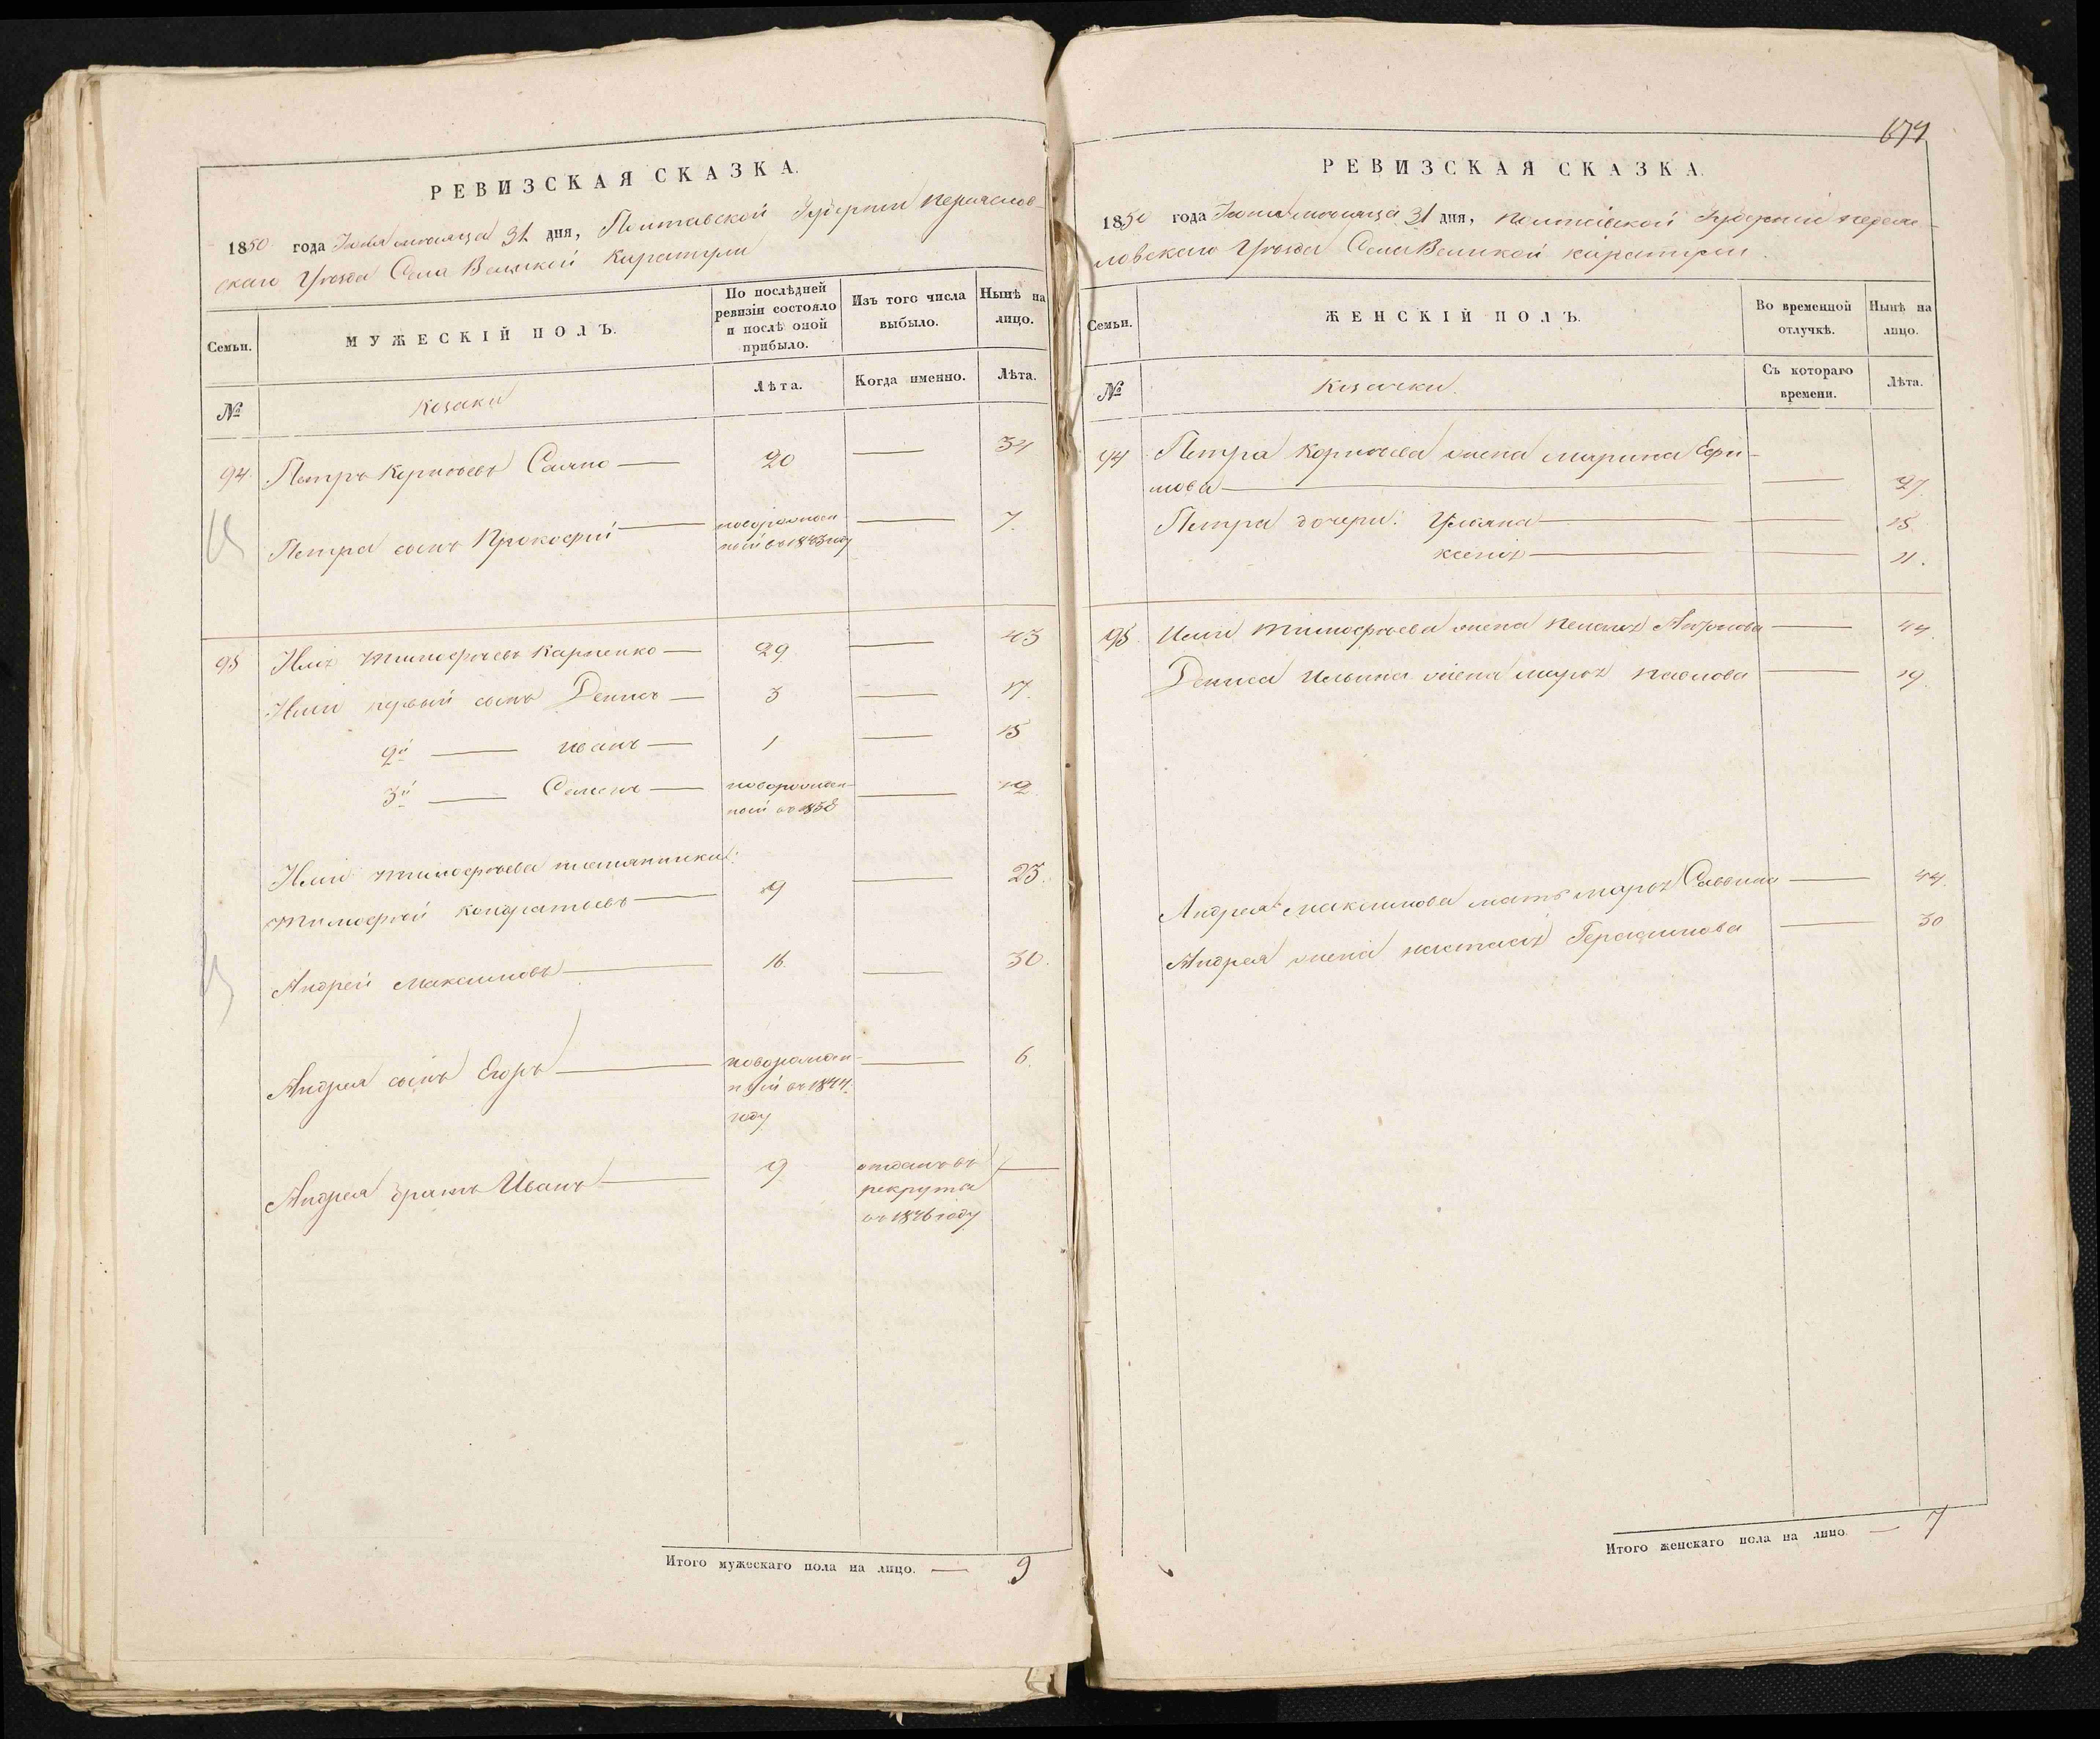 РЕВИЗСКАЯ СКАЗКА.
1850 года Июля месяца 31 дня, Полтавской Губернии Переяслов-
скаго Уѣзда Села Великой Каратули
Семьи.
МУЖЕСКІЙ ПОЛЪ.
По послѣдней
ревизіи состояло
и послѣ оной
прибыло.
Изъ того числа
выбыло.
Нынѣ на
лицо.
№
Козаки
Лѣта.
Когда именно.
Лѣта.
94. Петръ Корнѣевъ 20 — 34
Петра сынъ Прокофій — новорожден- — 7.
ный въ 1843 году
95 Илія Тимофѣевъ Карпенко — 29 — 43
Иліи первый сынъ Денисъ — 3 — 17.
2й — Иванъ — 1 — 15
3й — Семенъ — новорожден- — 12.
ный въ 1838
Иліи Тимофѣева племянники:
Тимофѣй Кондратьевъ — 9 — 23.
Андрей Максимовъ — 16. — 30.
Андрея сынъ Егоръ — новорожден- — 6.
ный въ 1844.
году
Андрея братъ Иванъ — 9 отданъ въ —
рекруты
въ 1846 году
Итого мужескаго пола на лицо. — 9
679
РЕВИЗСКАЯ СКАЗКА.
1850 года Июля месяца 31 дня, Полтавской Губерніи Переяс-
ловскаго Уѣзда Села Великой Каратули.
Семьи.
ЖЕНСКІЙ ПОЛЪ.
Во временной
отлучкѣ.
Нынѣ на
лицо.
№
Козачки.
Съ котораго
времени.
Лѣта.
94 Петра Корнѣева жена Марина Ефи-
мова — — 37.
Петра дочери: Ульяна — — 15.
Ксенія — — 11.
95. Иліи Тимофѣева жена Пелагія — 44.
Дениса Ильина жена Марѳа Павлова — 19.
Андрея Максимова мать Марѳа Саввина — 44.
Андрея жена Настасія Герасимова — 30
Итого женскаго пола на лицо. — 7